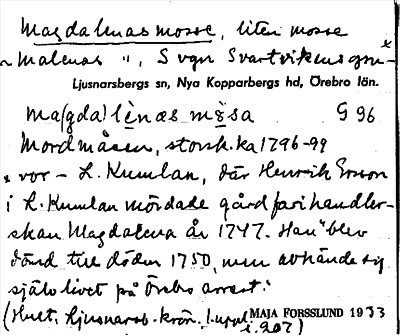 Magdalenasmosse, liten mosse
~ Malenas ", S vgn Svartvikens grn x
Ljusnarsbergs sn, Nya Kopparbergs hd, Örebro län.
ma(gda)lènas mo̊sa G 96
Mordmåsen, storsk.ka 1796-99
x vor – L. Kumlan, där Henrik Ersson
i L. Kumlan mördade gårdfarihandler-
skan Magdalena år 1747. Han "blev
dömd till döden 1750, men avhände sig
själv livet på Örebro arrest."
(Hult, Ljusnarsb. krön. 1. uppl. MAJA FORSSLUND 1933
s. 207)